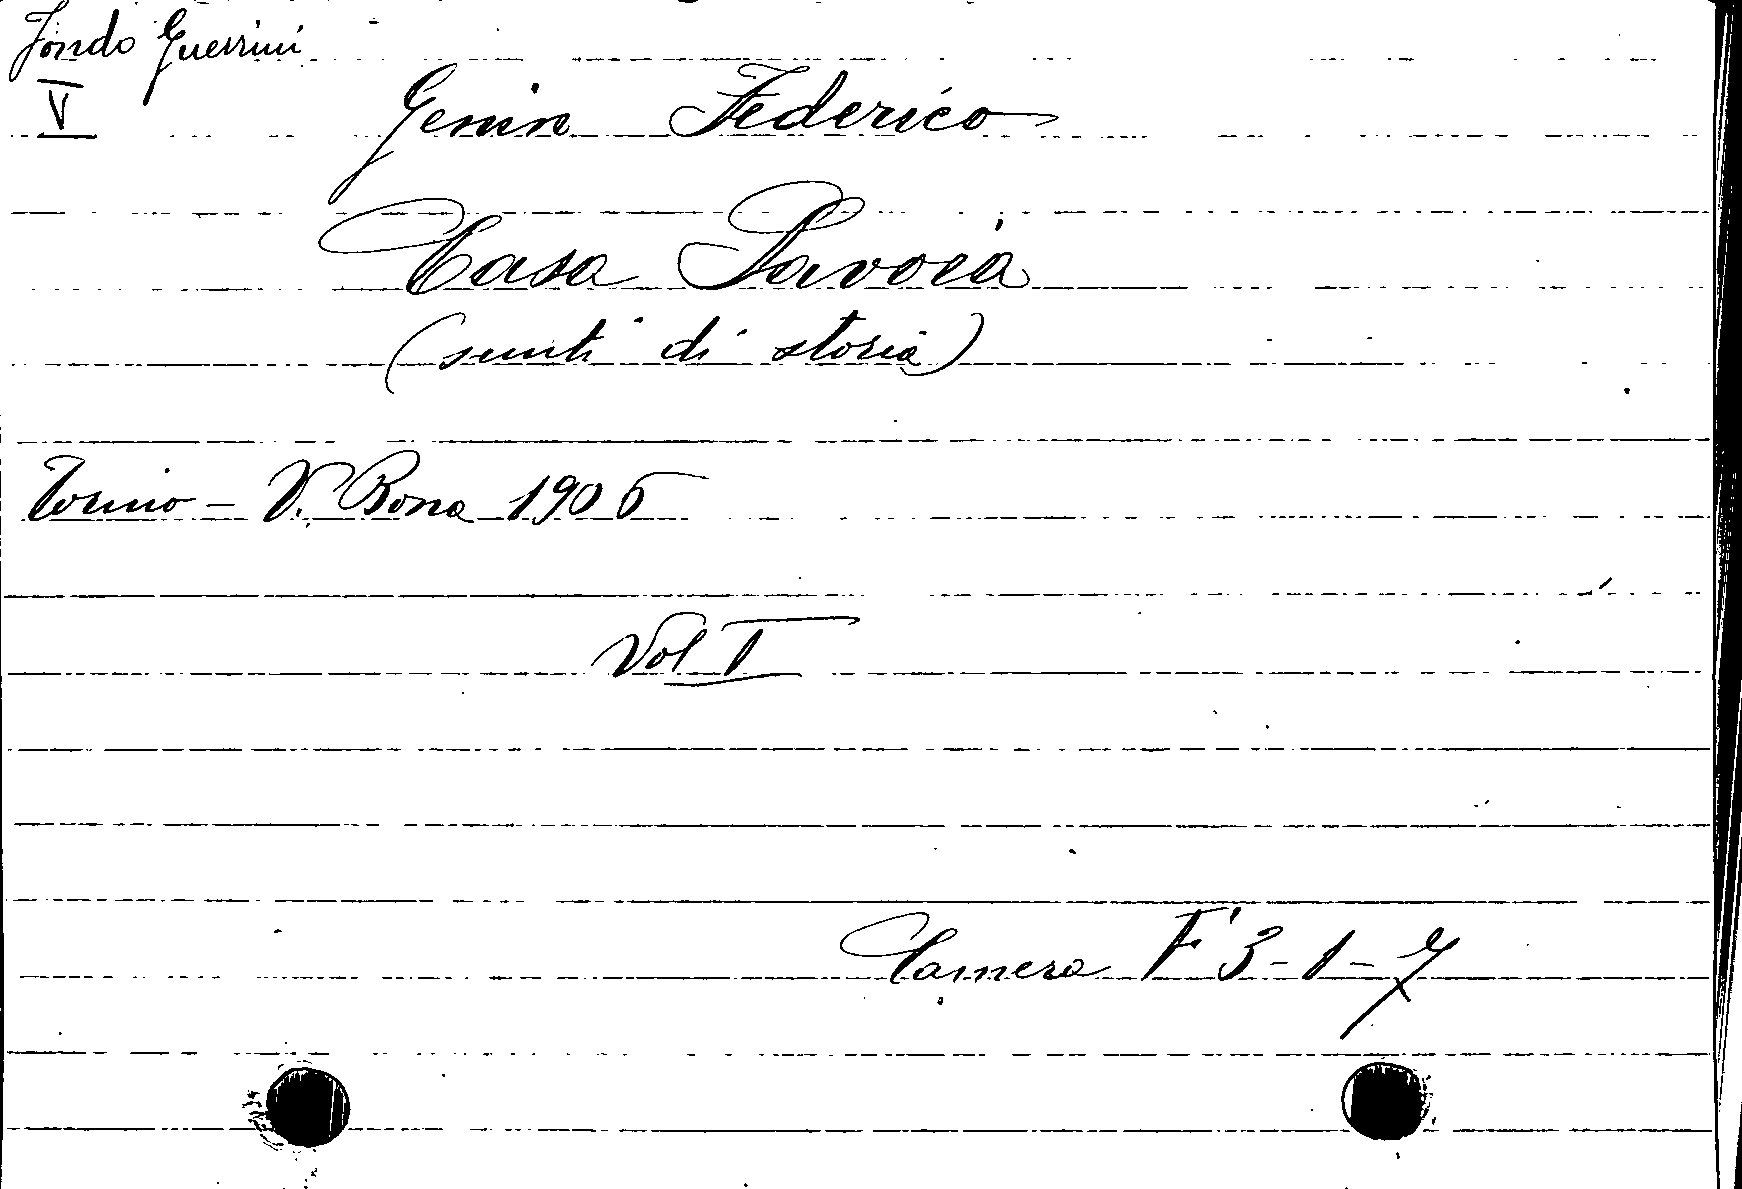 Fondo Guerrini
V
Genin Federico
Casa Savoia
(sunti di storia)
Torino - V. Bona 1905
Vol I
Camera F 3-1-7